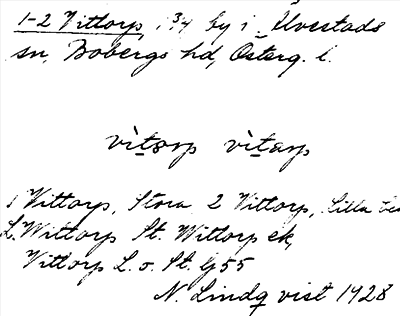 1-2 Vittorp, i 3/4 by i Ulvestads
sn, Bobergs hd, Österg. l.
vìtorp vìtarp
1 Vittorp, Stora 2 Vittorp, Lilla
L. Wittorp St. Wittorp ek,
Vittorp L. o. St. Gj 55
N. Lindq vist 1928